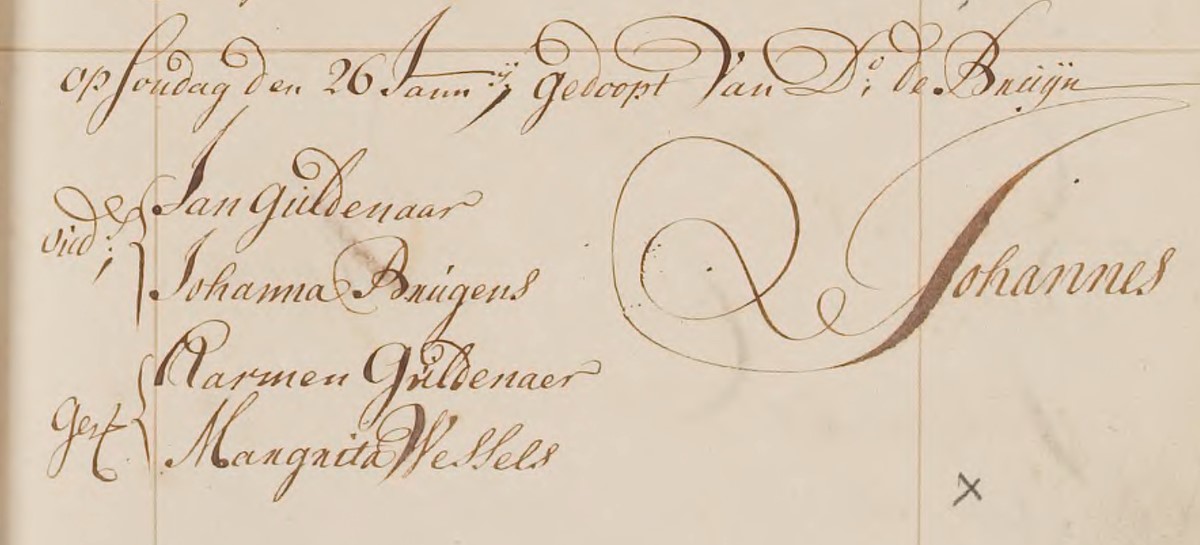 op Sondag den 26 Jann:ij gedoopt Van Do: de Bruijn
Jan Guldenaar
Johanna Brugens
Johannes
Harmen Guldenaer
Get
Margrita Wessels
x